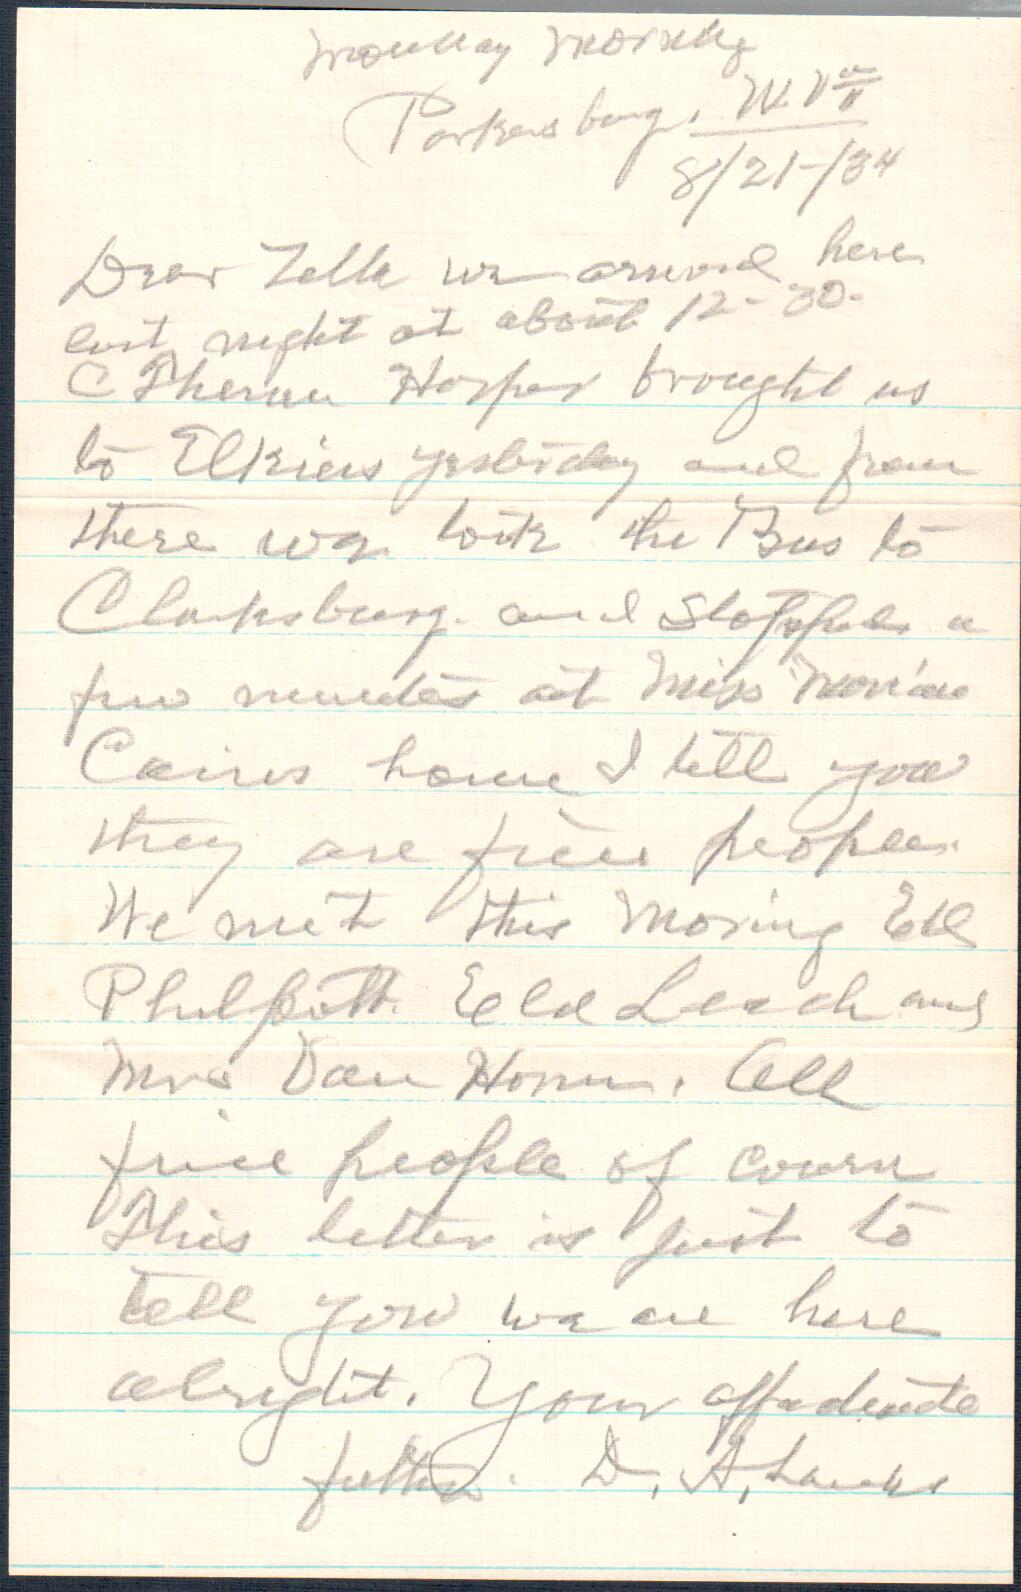 Monday Morning
Parkersburg, W. Va
8/21-/34
Dear Zella we arrived here
last night at about 12-30-
C Therun Harper brought us
to Elkins yesterday and from
there we took the Bus to
Clarksburg. and Stopped a
few minutes at Miss
Cairns home I tell you
they are fine people.
We met this Moring Ed
Philpott. Leach and
Mrs Dan Horner. All
fine people of course
This letter is just to
tell you we are here
alright. Your affectinate
father. D. A,